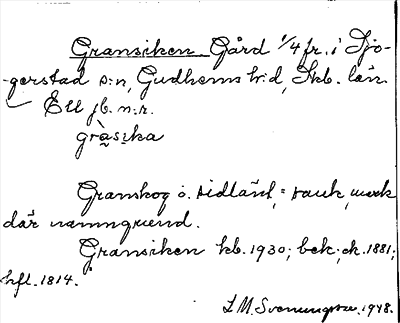 Gransiken Gård 1/4 fr. i Sjo-
gerstad s:n, Gudhems h:d, Skb. län.
Ett jb. n:r.
gràsika
Granskog o. sidlänt, = sank, mark
där namngivend.
Gransiken kb. 1930; bek; ck. 1881;
hfl. 1814.
L M. Svenungsson. 1948.